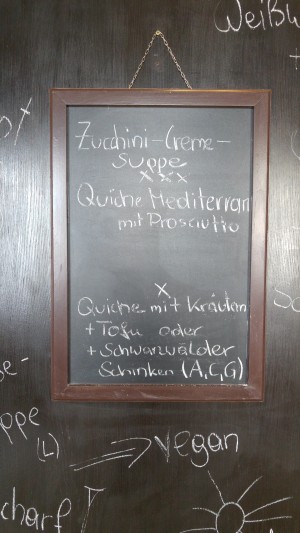 Zucchini-Creme-
Suppe
xxx
Quiche Mediterran
mit Prosciutto
x
Quiche mit Kräutern
+ Tofu oder
+ Schwarzwälder
Schinken (A,C,G)
(L)
vegan